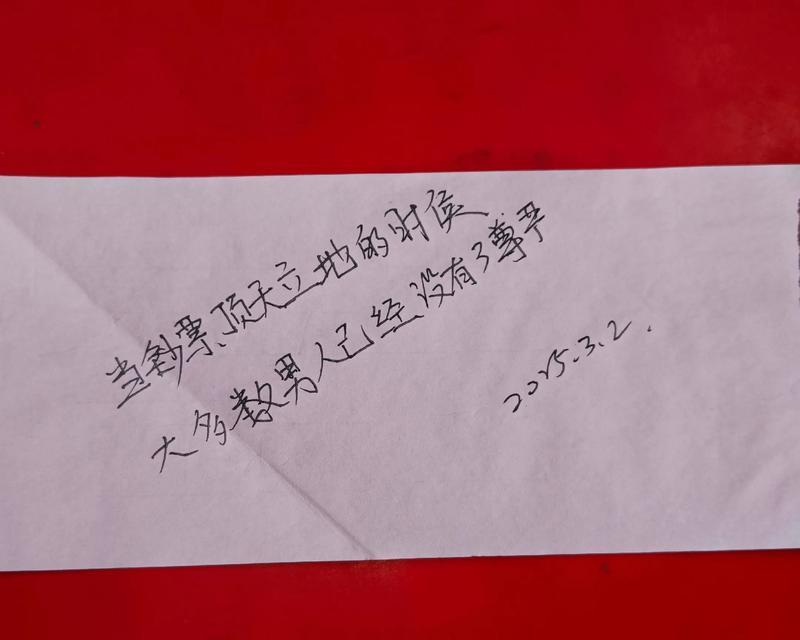 当钞票顶天立地的时候
大多数男人已经没有了尊严
2025.3.2.